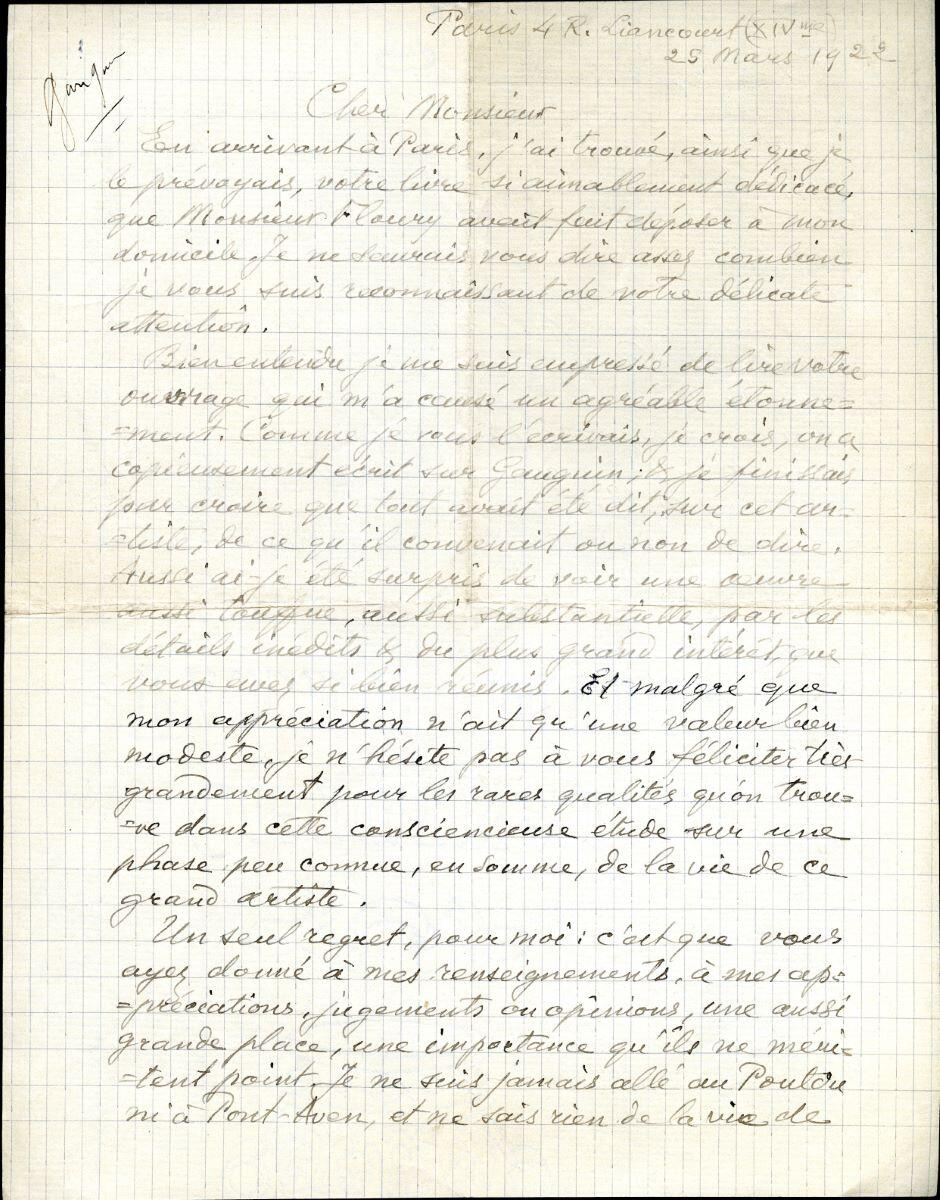 Paris 4 R. Liancourt (XIVme)
25 Mars 1922
Gauguin
Cher Monsieur
En arrivant à Paris, j'ai trouvé, ainsi que je
le prévoyais, votre livre si aimablement dédicacé,
que Monsieur Floury avait fait déposer à mon
domicile. Je ne saurais vous dire assez combien
je vous suis reconnaissant de votre délicate
attention.
Bien entendu je me suis empressé de lire votre
ouvrage qui m'a causé un agréable étonne=
=ment. Comme je vous l'écrivais, je crois, on a
copieusement écrit sur Gauguin; & je finissais
par croire que tout avait été dit, sur cet ar=
=tiste, de ce qu'il convenait ou non de dire.
Aussi ai-je été surpris de voir une oeuvre
aussi touffue, aussi substantielle, par les
détails inédits & du plus grand intérêt, que
vous avez si bien réunis. Et malgré que
mon appréciation n'ait qu'une valeur bien
modeste, je n'hésite pas à vous féliciter très
grandement pour les rares qualités qu'on trou=
=ve dans cette consciencieuse étude sur une
phase peu connue, en somme, de la vie de ce
grand artiste.
Un seul regret, pour moi: c'est que vous
ayez donné à mes renseignements, à mes ap=
=préciations, jugements ou opinions, une aussi
grande place, une importance qu'ils ne méri=
=tent point. Je ne suis jamais allé au Pouldu
ni à Pont-Aven, et ne sais rien de la vie de